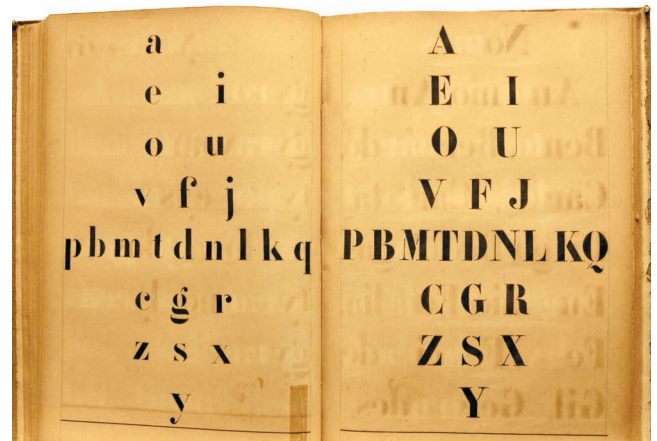 a
e i
o u
v f j
p b m t d n l k q
c g r
z s x
y
A
E I
O U
V F J
P B M T D N L K Q
C G R
Z S X
Y